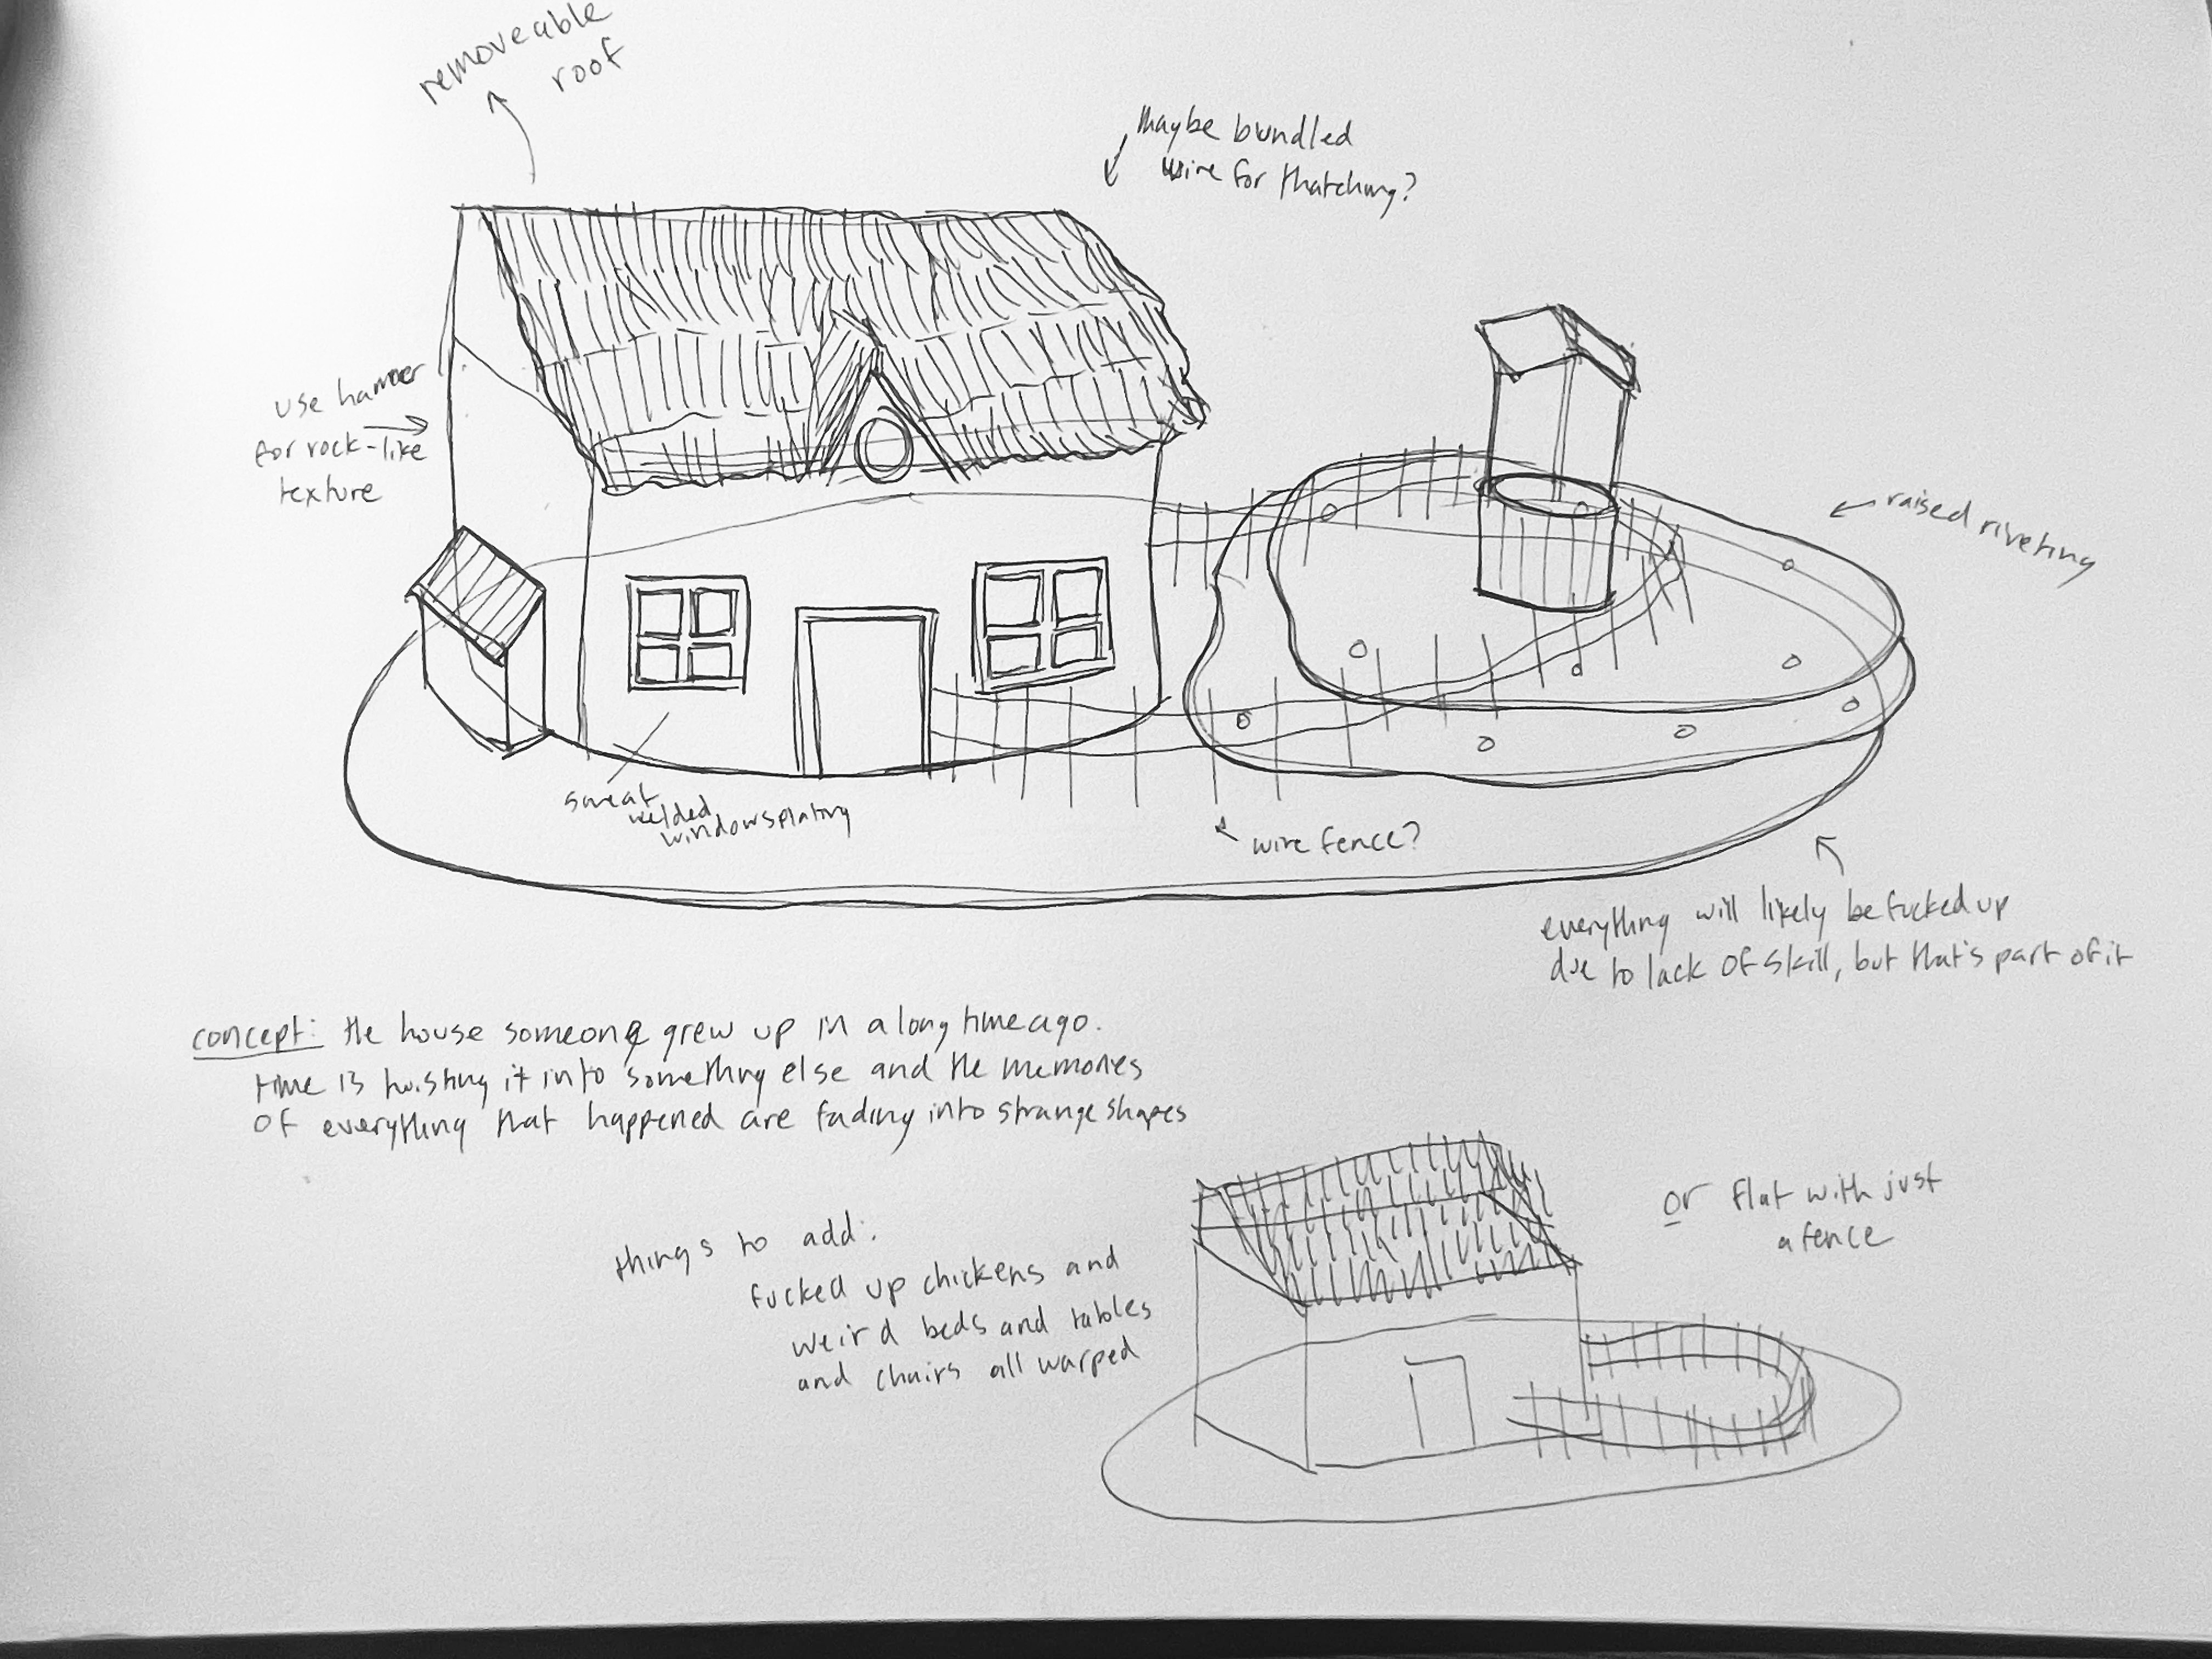 removeable
roof
maybe bundled
wire for thatching?
use hammer
for rock-like
texture
raised riveting
sweat
welded
windows plating
wire fence?
everything will likely be fucked up
due to lack of skill, but that's part of it
concept: the house someone grew up in a long time ago.
time is twisting it into something else and the memories
of everything that happened are fading into strange shapes
things to add:
fucked up chickens and
weird beds and tables
and chairs all warped
or flat with just
a fence